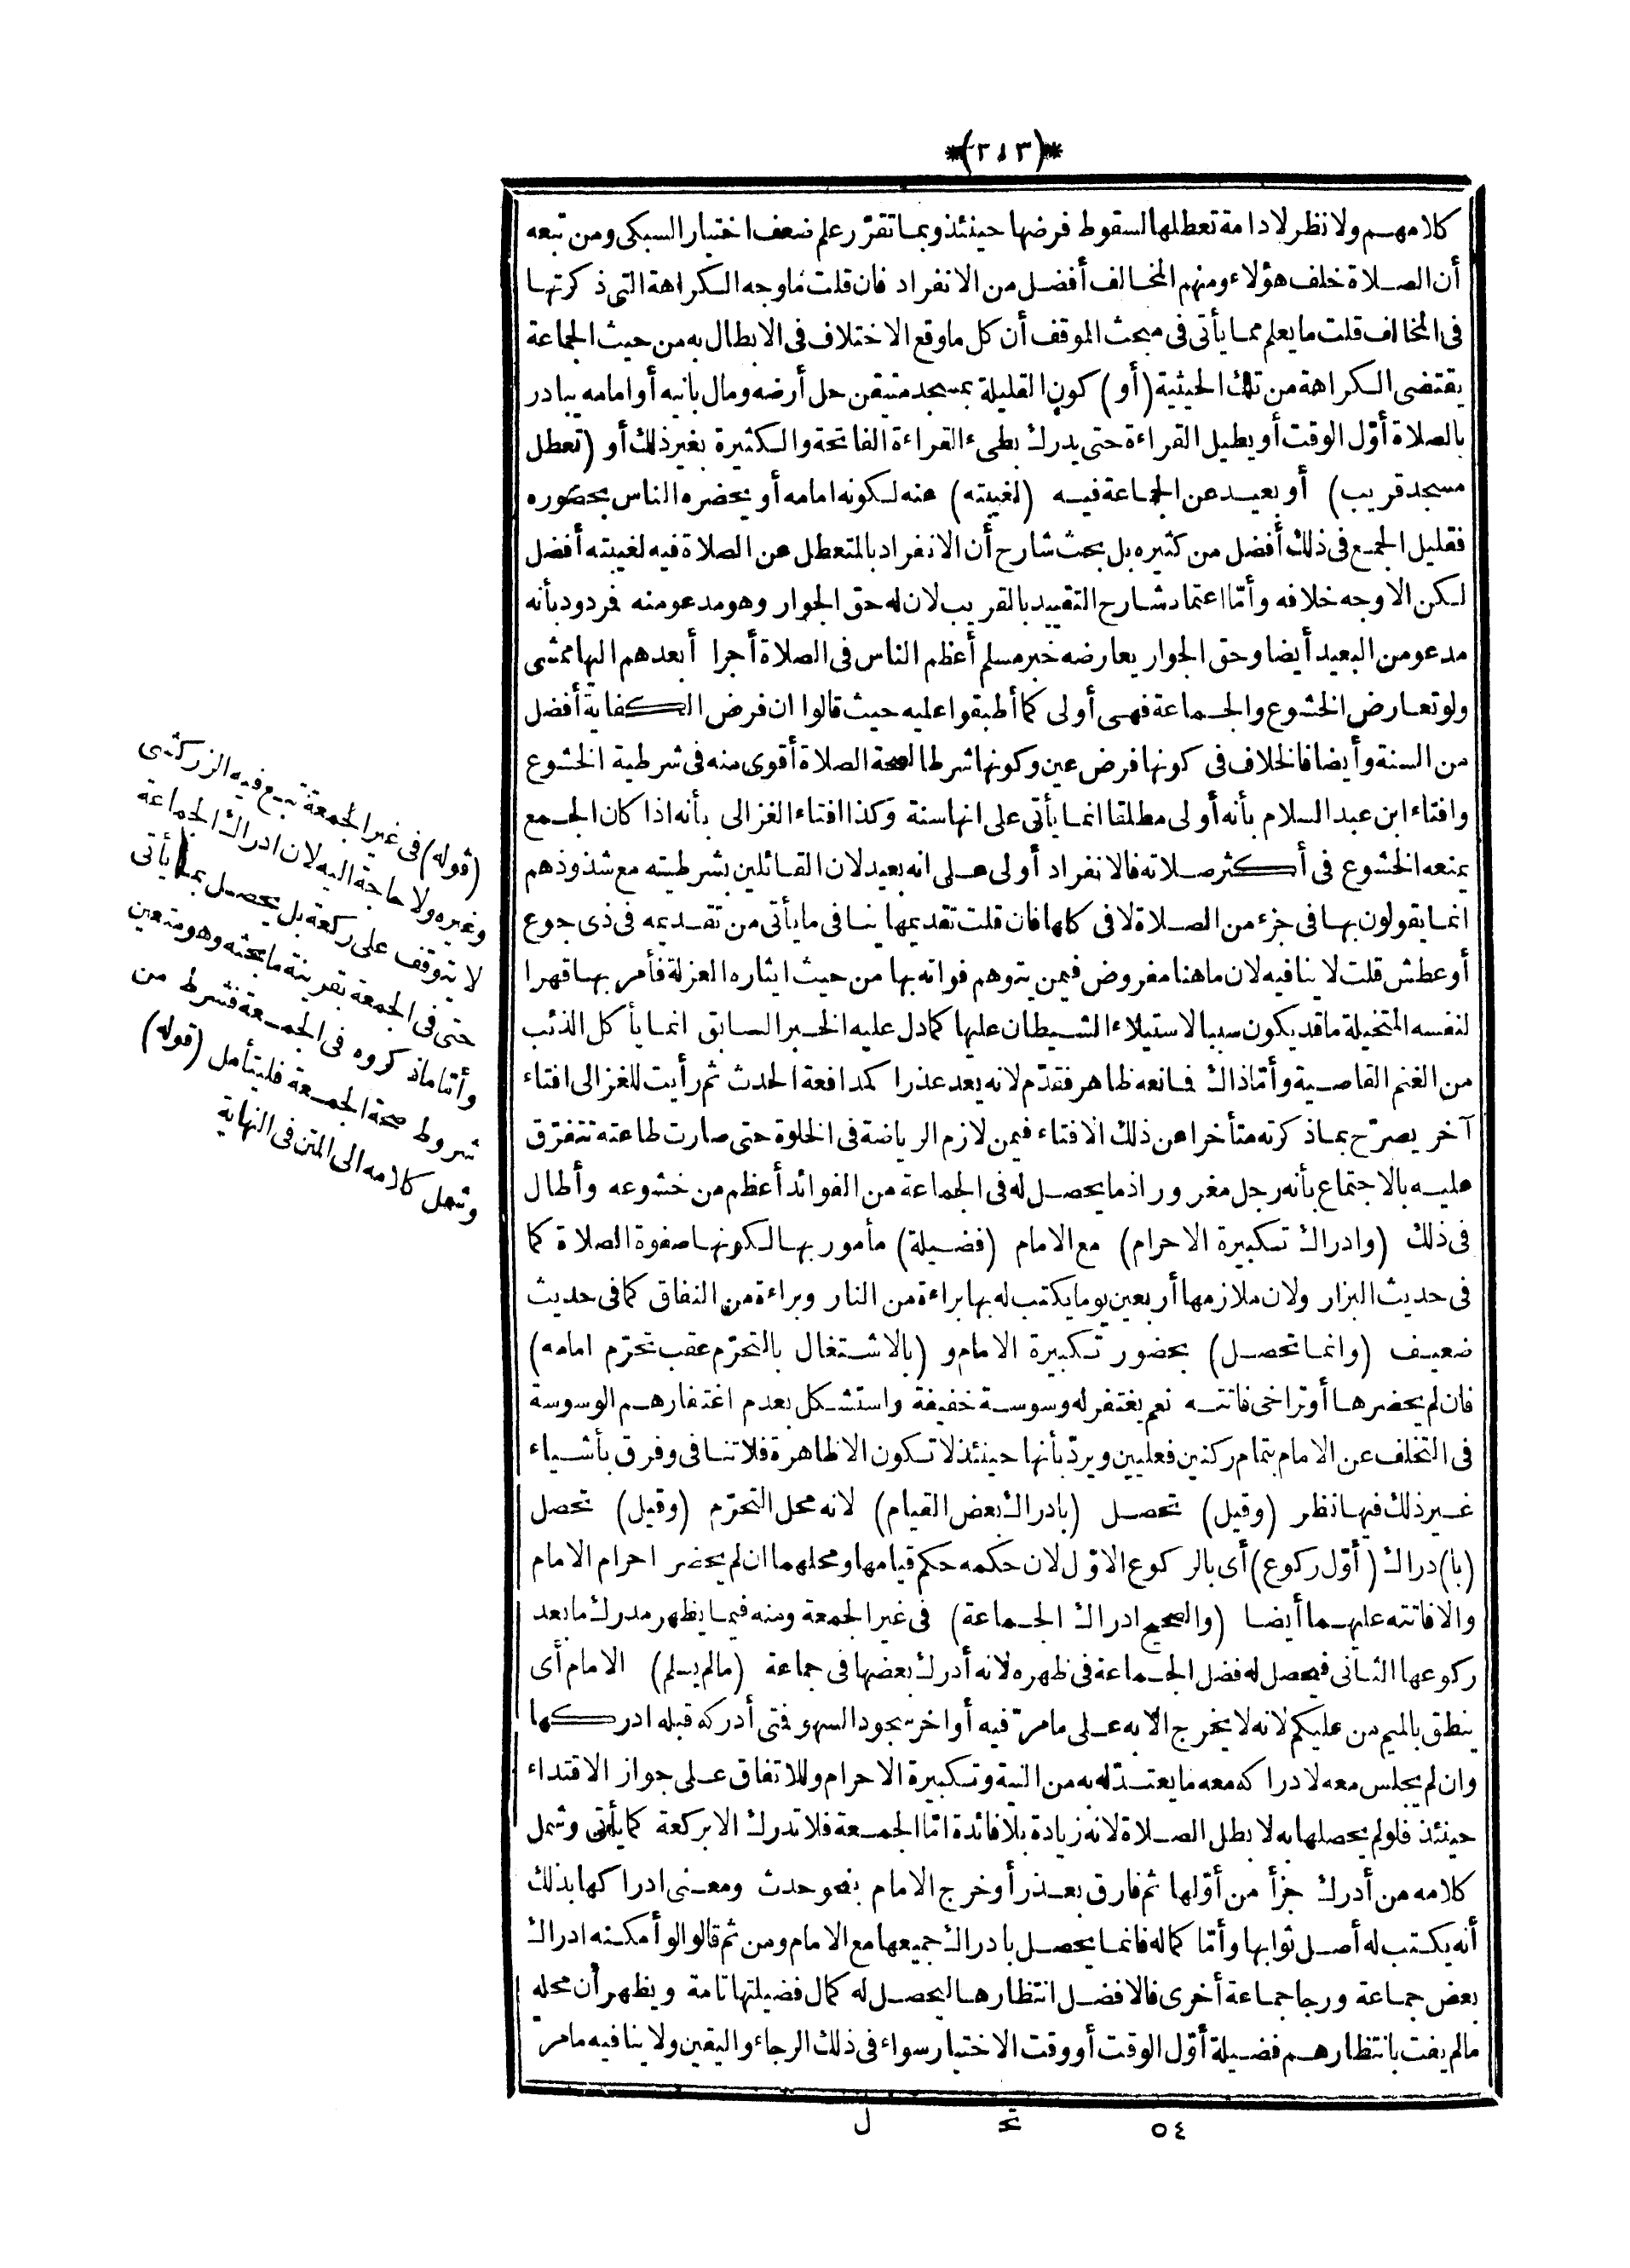 *(٢١٣)*
كلامهم ولا نظر لادامة تعطلها لسقوط فرضها حينئذ وبما تقرّر علم ضعف اختيار السبكى ومن تبعه
أن الصلاة خلف هؤلاء ومنهم المخالف أفضل من الانفراد فان قلت ما وجه الكراهة التى ذكرتها
فى المخالف قلت ما يعلم مما يأتى فى مبحث الموقف أن كل ما وقع الاختلاف فى الابطال به من حيث الجماعة
يقتضى الكراهة من تلك الحيثية (أو) كون القليلة بمسجد متيقن حل أرضه ومال بانيه أو امامه يبادر
بالصلاة أوّل الوقت أو يطيل القراءة حتى يدرك بطىء القراءة الفاتحة والكثيرة بغير ذلك أو (تعطل
مسجد قريب) أو بعيد عن الجماعة فيه (لغيبته) عنه لكونه امامه أو يحضره الناس بحضوره
فقليل الجمع فى ذلك أفضل من كثيره بل بحث شارح أن الانفراد بالمتعطل عن الصلاة فيه لغيبته أفضل
لكن الاوجه خلافه وأمّا اعتماد شارح التقييد بالقريب لان له حق الجوار وهو مدعو منه فردود بأنه
مدعو من البعيد أيضا وحق الجوار يعارضه خبر مسلم أعظم الناس فى الصلاة أجرا أبعدهم اليها ممشى
ولو تعارض الخشوع والجماعة فهى أولى كما أطبقوا عليه حيث قالوا ان فرض الكفاية أفضل
من السنة وأيضا فالخلاف فى كونها فرض عين وكونها شرطا لصحة الصلاة أقوى منه فى شرطية الخشوع
وافتاء ابن عبد السلام بأنه أولى مطلقا انما يأتى على انها سنة وكذا افتاء الغزالى بأنه اذا كان الجمع
يمنعه الخشوع فى أكثر صلاته فالانفراد أولى على انه بعيد لان القائلين بشرطيته مع شذوذهم
انما يقولون بها فى جزء من الصلاة لا فى كلها فان قلت تقديمها ينافى ما يأتى من تقديمه فى ذى جوع
أو عطش قلت لا ينافيه لان ما هنا مفروض فيمن يتوهم فواته بها من حيث ايثاره العزلة فأمر بها قهرا
لنفسه المتخيلة ما قد يكون سببا لاستيلاء الشيطان عليها كما دل عليه الخبر السابق انما يأكل الذئب
من الغنم القاصية وأمّا ذاك فمانعه ظاهر فقدّم لانه يعد عذرا كمدافعة الحدث ثم رأيت للغزالى افتاء
آخر يصرّح بما ذكرته متأخرا عن ذلك الافتاء فيمن لازم الرياضة فى الخلوة حتى صارت طاعته تتفرّق
عليه بالاجتماع بأنه رجل مغرور اذ ما يحصل له فى الجماعة من الفوائد أعظم من خشوعه وأطال
فى ذلك (وادراك تكبيرة الاحرام) مع الامام (فضيلة) مأمور بها لكونها صفوة الصلاة كما
فى حديث البزار ولان ملازمها أربعين يوما يكتب له بها براءة من النار وبراءة من النفاق كما فى حديث
ضعيف (وانما تحصل) بحضور تكبيرة الامام و (بالاشتغال بالتحرّم عقب تحرّم امامه)
فان لم يحضرها أو تراخى فاتته نعم يغتفر له وسوسة خفيفة واستشكل بعدم اغتفارهم الوسوسة
فى التخلف عن الامام بتمام ركنين فعليين ويردّ بأنها حينئذ لا تكون الا ظاهرة فلا تنافى وفرق بأشياء
غير ذلك فيها نظر (وقيل) تحصل (بادراك بعض القيام) لانه محل التحرّم (وقيل) تحصل
(با) دراك (أوّل ركوع) أى بالركوع الاوّل لان حكمه حكم قيامها ومحلهما ان لم يحضر احرام الامام
والا فاتته عليهما أيضا (والصحيح ادراك الجماعة) فى غير الجمعة ومنه فيما يظهر مدرك ما بعد
ركوعها الثانى فيحصل له فضل الجماعة فى ظهره لانه أدرك بعضها فى جماعة (ما لم يسلم) الامام أى
ينطق بالميم من عليكم لانه لا يخرج الا به على ما مرّ فيه أواخر سجود السهو فتى أدركه قبله ادركها
وان لم يجلس معه لادراكه معه ما يعتدّ له به من النية وتكبيرة الاحرام وللاتفاق على جواز الاقتداء
حينئذ فلو لم يحصلها به لابطل الصلاة لانه زيادة بلا فائدة امّا الجمعة فلا تدرك الا بركعة كما يأتى وشمل
كلامه من أدرك جزأ من أوّلها ثم فارق بعذر أو خرج الامام بنحو حدث ومعنى ادراكها بذلك
أنه يكتب له أصل ثوابها وأمّا كماله فانما يحصل بادراك جميعها مع الامام ومن ثم قالوا لو أمكنه ادراك
بعض جماعة ورجا جماعة أخرى فالافضل انتظارها ليحصل له كمال فضيلتها تامة ويظهر أن محله
ما لم يفت بانتظارهم فضيلة أوّل الوقت أو وقت الاختيار سواء فى ذلك الرجاء واليقين ولا ينافيه ما مرّ
٥٤ تح ل
(قوله) فى غير الجمعة تبع فيه الزركشى
وغيره ولا حاجة اليه لان ادراك الجماعة
لا يتوقف على ركعة بل يحصل بما يأتى
حتى فى الجمعة بقرينة ما بحثه وهو متعين
وأمّا ما ذكروه فى الجمعة فشرط من
شروط صحة الجمعة فليتأمل (قوله)
وشمل كلامه الى المتن فى النهاية